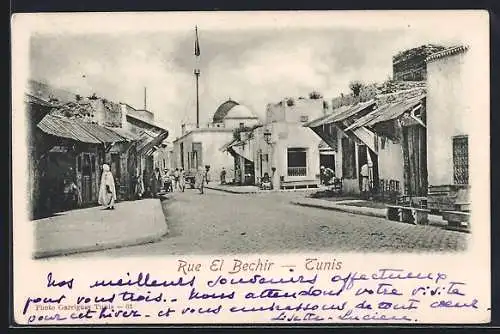 Rue El Bechir — Tunis
Nos meilleurs souvenirs affectueux
Photo Garrigues Tunis – 61
pour vous trois. Nous attendons votre visite
pour cet hiver et vous embrassons de tout cœur
Lisette-Lucien.